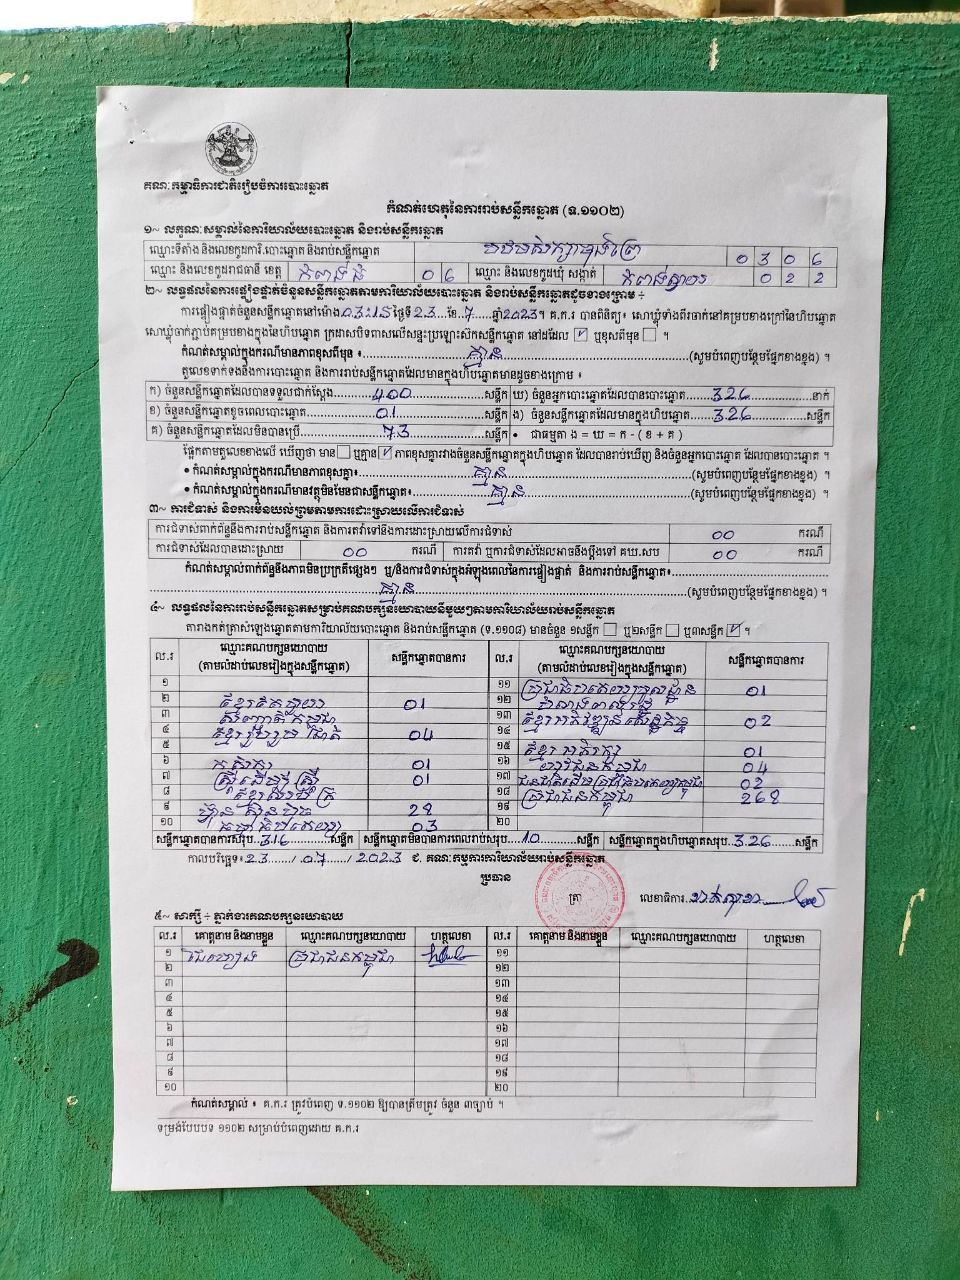 គណៈកម្មាធិការជាតិរៀបចំការបោះឆ្នោត
កំណត់ហេតុនៃការរាប់សន្លឹកឆ្នោត (ទ.១១០២)
១~ លក្ខណៈសម្គាល់នៃការិយាល័យបោះឆ្នោត និងរាប់សន្លឹកឆ្នោត
ឈ្មោះទីតាំង និងលេខកូដការិ.បោះឆ្នោត និងរាប់សន្លឹកឆ្នោត 0 3 0 6
ឈ្មោះ និងលេខកូដរាជធានី ខេត្ត កំពង់ធំ 0 6 ឈ្មោះ និងលេខកូដឃុំ សង្កាត់ កំពង់ស្វាយ 0 2 2
២~ លទ្ធផលនៃការផ្ទៀងផ្ទាត់ចំនួនសន្លឹកឆ្នោតតាមការិយាល័យបោះឆ្នោត និងរាប់សន្លឹកឆ្នោតដូចខាងក្រោម ÷
ការផ្ទៀងផ្ទាត់ចំនួនសន្លឹកឆ្នោតនៅម៉ោង 03:15 ថ្ងៃទី 23 ខែ 7 ឆ្នាំ 2023។ គ.ក.រ បានពិនិត្យ៖ សោឃ្លុំទាំងពីរចាក់នៅគម្របខាងក្រៅនៃហិបឆ្នោត
សោឃ្លុំចាក់ភ្ជាប់គម្របខាងក្នុងនៃហិបឆ្នោត ក្រដាសបិទពាសលើសន្ទះប្រឡោះស៊កសន្លឹកឆ្នោត នៅដដែល ☑ ឬខុសពីមុន ☐ ។
កំណត់សម្គាល់ក្នុងករណីមានភាពខុសពីមុន ៖ គ្មាន (សូមបំពេញបន្ថែមផ្នែកខាងខ្នង) ។
តួលេខទាក់ទងនឹងការបោះឆ្នោត និងការរាប់សន្លឹកឆ្នោតដែលមានក្នុងហិបឆ្នោតមានដូចខាងក្រោម ៖
ក) ចំនួនសន្លឹកឆ្នោតដែលបានទទួលជាក់ស្តែង 400 សន្លឹក ឃ) ចំនួនអ្នកបោះឆ្នោតដែលបានបោះឆ្នោត 326 នាក់
ខ) ចំនួនសន្លឹកឆ្នោតខូចពេលបោះឆ្នោត 01 សន្លឹក ង) ចំនួនសន្លឹកឆ្នោតដែលមានក្នុងហិបឆ្នោត 326 សន្លឹក
គ) ចំនួនសន្លឹកឆ្នោតដែលមិនបានប្រើ 73 សន្លឹក • ជាធម្មតា ង = ឃ = ក - ( ខ + គ )
ផ្អែកតាមតួលេខខាងលើ ឃើញថា មាន ☐ ឬគ្មាន ☑ ភាពខុសគ្នារវាងចំនួនសន្លឹកឆ្នោតក្នុងហិបឆ្នោត ដែលបានរាប់ឃើញ និងចំនួនអ្នកបោះឆ្នោត ដែលបានបោះឆ្នោត ។
• កំណត់សម្គាល់ក្នុងករណីមានភាពខុសគ្នា៖ គ្មាន (សូមបំពេញបន្ថែមផ្នែកខាងខ្នង) ។
• កំណត់សម្គាល់ក្នុងករណីមានវត្ថុមិនមែនជាសន្លឹកឆ្នោត៖ គ្មាន (សូមបំពេញបន្ថែមផ្នែកខាងខ្នង) ។
៣~ ការជំទាស់ និងការមិនយល់ព្រមតាមការដោះស្រាយលើការជំទាស់
ការជំទាស់ពាក់ព័ន្ធនឹងការរាប់សន្លឹកឆ្នោត និងការតវ៉ាទៅនឹងការដោះស្រាយលើការជំទាស់ 00 ករណី
ការជំទាស់ដែលបានដោះស្រាយ 00 ករណី ការតវ៉ា ឬការជំទាស់ដែលអាចនឹងប្តឹងទៅ គឃ.សប 00 ករណី
កំណត់សម្គាល់ពាក់ព័ន្ធនឹងភាពមិនប្រក្រតីផ្សេងៗ ឬ/និងការជំទាស់ក្នុងអំឡុងពេលនៃការផ្ទៀងផ្ទាត់ និងការរាប់សន្លឹកឆ្នោត៖
គ្មាន (សូមបំពេញបន្ថែមផ្នែកខាងខ្នង) ។
៤~ លទ្ធផលនៃការរាប់សន្លឹកឆ្នោតសម្រាប់គណបក្សនយោបាយនីមួយៗតាមការិយាល័យរាប់សន្លឹកឆ្នោត
តារាងកត់ត្រាសំឡេងឆ្នោតតាមការិយាល័យបោះឆ្នោត និងរាប់សន្លឹកឆ្នោត (ទ.១១០៨) មានចំនួន ១សន្លឹក ☐ ឬ២សន្លឹក ☐ ឬ៣សន្លឹក ☑ ។
ល.រ ឈ្មោះគណបក្សនយោបាយ (តាមលំដាប់លេខរៀងក្នុងសន្លឹកឆ្នោត) សន្លឹកឆ្នោតបានការ ល.រ ឈ្មោះគណបក្សនយោបាយ (តាមលំដាប់លេខរៀងក្នុងសន្លឹកឆ្នោត) សន្លឹកឆ្នោតបានការ
១ ១១ 01
២ 01 ១២
៣ ១៣ 02
៤ 04 ១៤
៥ ១៥ 01
៦ 01 ១៦ 04
៧ 01 ១៧ 02
៨ ១៨ ប្រជាជនកម្ពុជា 268
៩ 28 ១៩
១០ 03 ២០
សន្លឹកឆ្នោតបានការសរុប 316 សន្លឹក សន្លឹកឆ្នោតមិនបានការពេលរាប់សរុប 10 សន្លឹក សន្លឹកឆ្នោតក្នុងហិបឆ្នោតសរុប 326 សន្លឹក
កាលបរិច្ឆេទ៖ 23 / 07 / 2023 ៩. គណៈកម្មការការិយាល័យរាប់សន្លឹកឆ្នោត
ប្រធាន
ត្រា លេខាធិការ
៥~ សាក្សី ÷ ភ្នាក់ងារគណបក្សនយោបាយ
ល.រ គោត្តនាម និងនាមខ្លួន ឈ្មោះគណបក្សនយោបាយ ហត្ថលេខា ល.រ គោត្តនាម និងនាមខ្លួន ឈ្មោះគណបក្សនយោបាយ ហត្ថលេខា
១ ប្រជាជនកម្ពុជា ១១
២ ១២
៣ ១៣
៤ ១៤
៥ ១៥
៦ ១៦
៧ ១៧
៨ ១៨
៩ ១៩
១០ ២០
កំណត់សម្គាល់ ៖ គ.ក.រ ត្រូវបំពេញ ទ.១១០២ ឱ្យបានត្រឹមត្រូវ ចំនួន ៣ច្បាប់ ។
ទម្រង់បែបបទ ១១០២ សម្រាប់បំពេញដោយ គ.ក.រ